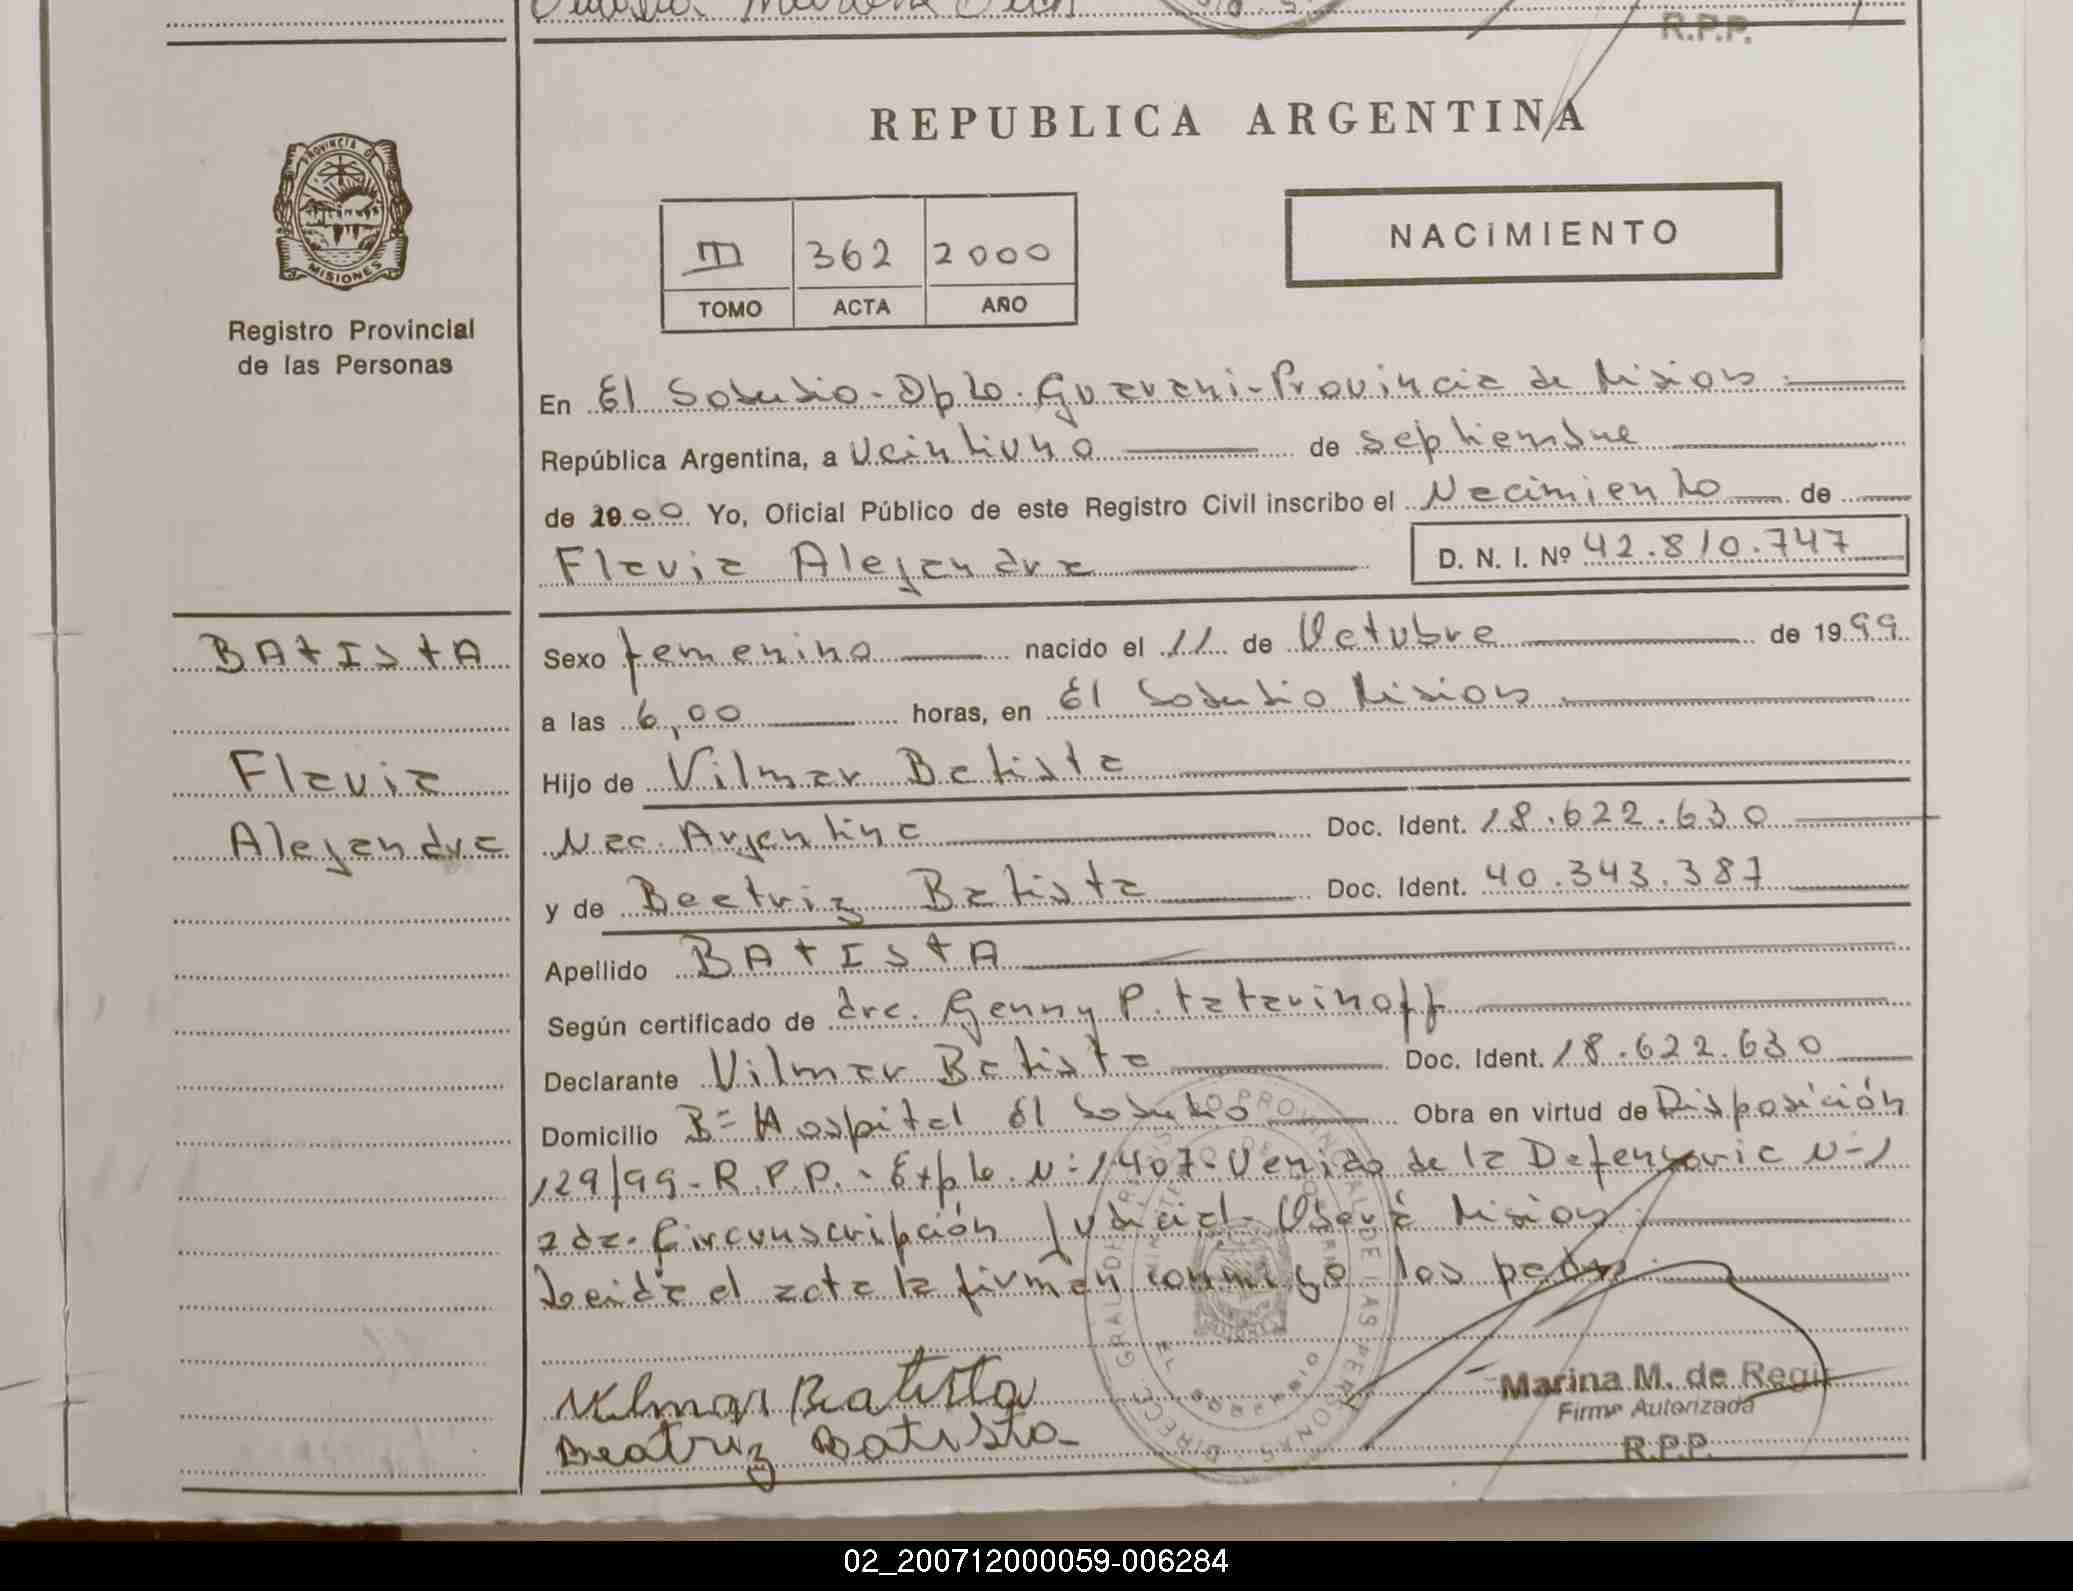 R.P.P.
REPUBLICA ARGENTINA
PROVINCIA DE
MISIONES
Registro Provincial
de las Personas
III 362 2000
TOMO ACTA AÑO
NACIMIENTO
En El Soberbio - Dpto. Guarani - Provincia de Misiones
República Argentina, a Veintiuno de septiembre
de 2000 Yo, Oficial Público de este Registro Civil inscribo el Nacimiento de
Flavia Alejandra D. N. I. Nº 42.810.747
BAtIstA
Flavia
Alejandra
Sexo femenino nacido el 11 de Octubre de 1999
a las 6,00 horas, en El Soberbio Misiones
Hijo de Vilmar Batista
Nac. Argentina Doc. Ident. 18.622.630
y de Beatriz Batista Doc. Ident. 40.343.387
Apellido BAtIstA
Según certificado de dra. Genny P. tatarinoff
Declarante Vilmar Batista Doc. Ident. 18.622.630
Domicilio Bº Hospital El Soberbio Obra en virtud de Disposición
129/99 - R.P.P. - Expte. Nº 1407. Venido de la Defensoria Nº 1
2da. Circunscripción Judicial - Oberá Misiones
Leida el acta la firman conmigo los padres
Vilmar Batista
Beatriz Batista
Marina M. de Regi
Firma Autorizada
R.P.P.
02_200712000059-006284